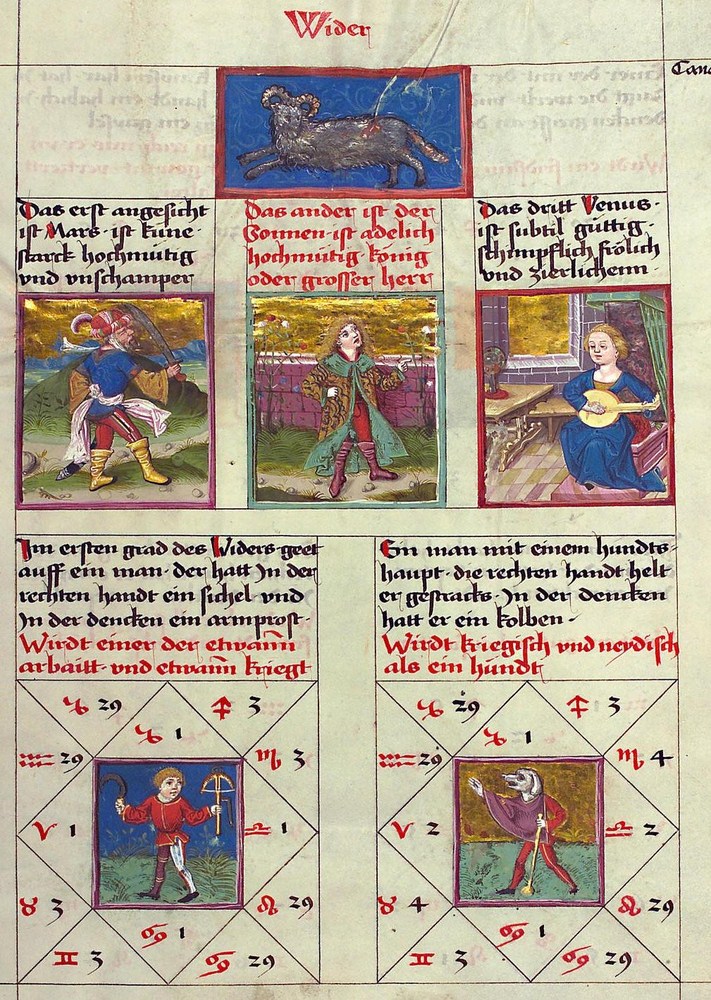 Wider
Das erst angesicht
ist Mars · ist küne ·
starck hochmütig
vnd vnschamper
Das ander ist der
Sonnen · ist adelich
hochmütig könig
oder grosser herr
Das dritt Venus ·
ist subtil güttig ·
schimpflich frölich
vnd zierlichenn ·
Im ersten grad des Widers · geet
auff ein man · der hatt In der
rechten handt ein sichel · vnd
In der dencken ein armprost ·
Wirdt einer der etwann
arbaitt · vnd etwann kriegt
♑ 29 ♐ 3
♑ 1
♒ 29 ♏ 3
♈ 1 ♎ 1
♉ 3 ♌ 29
♋ 1
♊ 3 ♋ 29
Ein man mit einem hundts-
haupt · die rechten handt helt
er gestracks · In der dencken
hatt er ein kolben ·
Wirdt kriegisch vnd neydisch
als ein hundt
♑ 29 ♐ 3
♑ 1
♒ 29 ♏ 4
♈ 2 ♎ 2
♉ 4 ♌ 29
♋ 1
♊ 3 ♋ 29